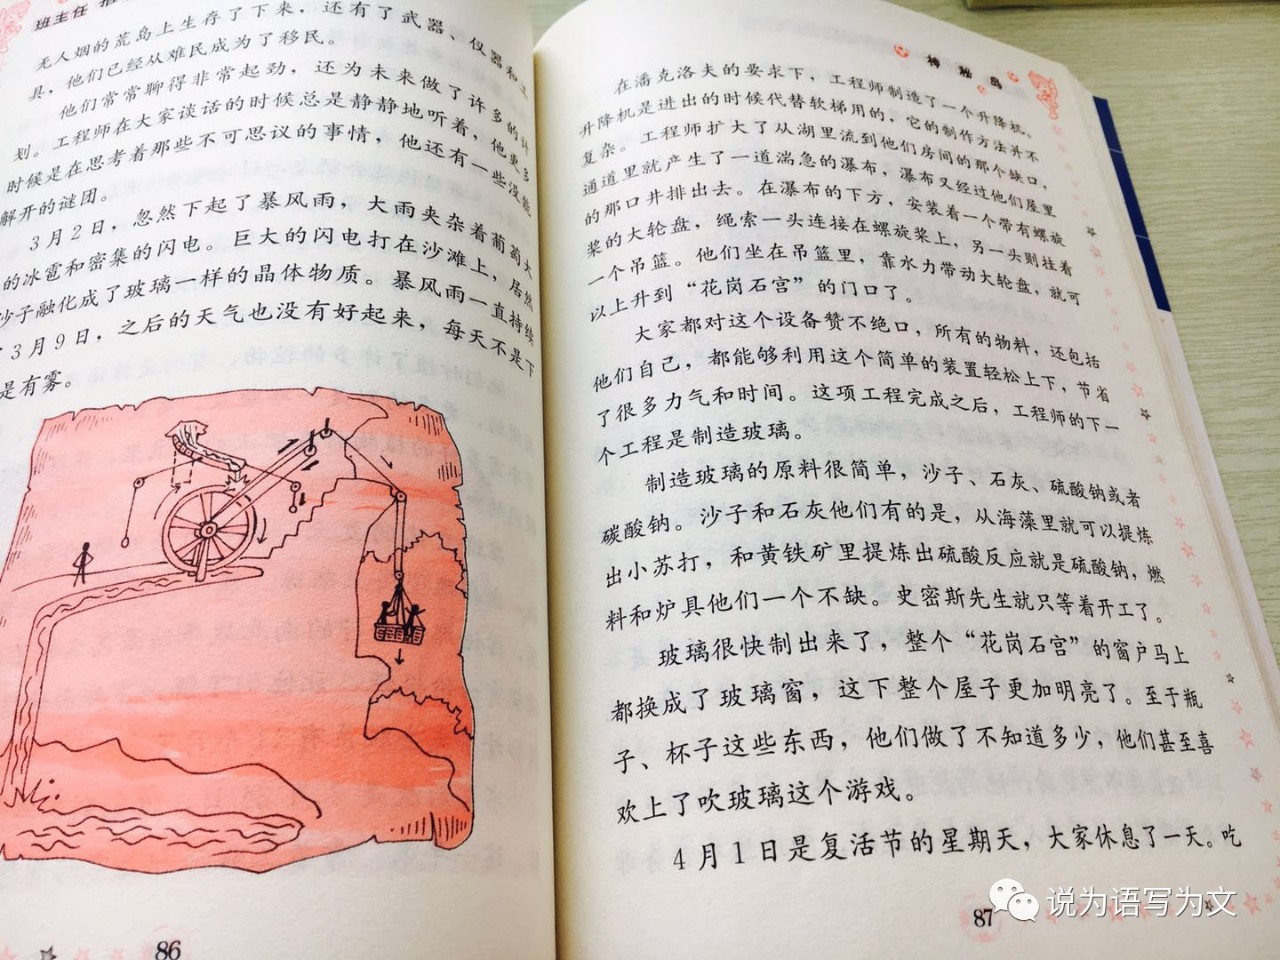 班主任
无人烟的荒岛上生存了下来，还有了武器、仪器和工
具，他们已经从难民成为了移民。
他们常常聊得非常起劲，还为未来做了许多的计
划。工程师在大家谈话的时候总是静静地听着，他更多
时候是在思考着那些不可思议的事情，他还有一些没能
解开的谜团。
3月2日，忽然下起了暴风雨，大雨夹杂着葡萄大
的冰雹和密集的闪电。巨大的闪电打在沙滩上，居然
沙子融化成了玻璃一样的晶体物质。暴风雨一直持续
3月9日，之后的天气也没有好起来，每天不是下
是有雾。
86
神秘岛
在潘克洛夫的要求下，工程师制造了一个升降机。
升降机是进出的时候代替软梯用的，它的制作方法并不
复杂。工程师扩大了从湖里流到他们房间的那个缺口，
通道里就产生了一道湍急的瀑布，瀑布又经过他们屋里
的那口井排出去。在瀑布的下方，安装着一个带有螺旋
桨的大轮盘，绳索一头连接在螺旋桨上，另一头则挂着
一个吊篮。他们坐在吊篮里，靠水力带动大轮盘，就可
以上升到“花岗石宫”的门口了。
大家都对这个设备赞不绝口，所有的物料，还包括
他们自己，都能够利用这个简单的装置轻松上下，节省
了很多力气和时间。这项工程完成之后，工程师的下一
个工程是制造玻璃。
制造玻璃的原料很简单，沙子、石灰、硫酸钠或者
碳酸钠。沙子和石灰他们有的是，从海藻里就可以提炼
出小苏打，和黄铁矿里提炼出硫酸反应就是硫酸钠，燃
料和炉具他们一个不缺。史密斯先生就只等着开工了。
玻璃很快制出来了，整个“花岗石宫”的窗户马上
都换成了玻璃窗，这下整个屋子更加明亮了。至于瓶
子、杯子这些东西，他们做了不知道多少，他们甚至喜
欢上了吹玻璃这个游戏。
4月1日是复活节的星期天，大家休息了一天。吃
87
说为语写为文